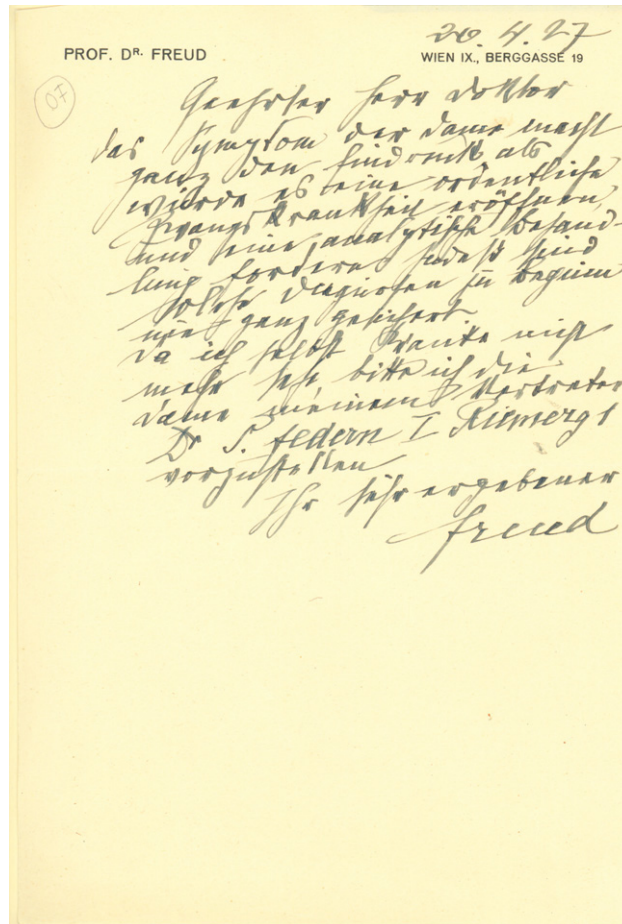 26.4.27
PROF. DR. FREUD WIEN IX., BERGGASSE 19
07
Geehrter Herr Doktor
Das Symptom der Dame macht
ganz den Eindruck als
würde es eine ordentliche
Zwangskrankheit eröffnen
und eine analytische Behand-
lung fordern. Indeß sind
solche Diagnosen zu Beginn
nie ganz gesichert.
Da ich selbst Kranke nicht
mehr sehe, bitte ich die
Dame meinem Vertreter
Dr Federn I Riemergs 1
vorzustellen
Ihr sehr ergebener
Freud